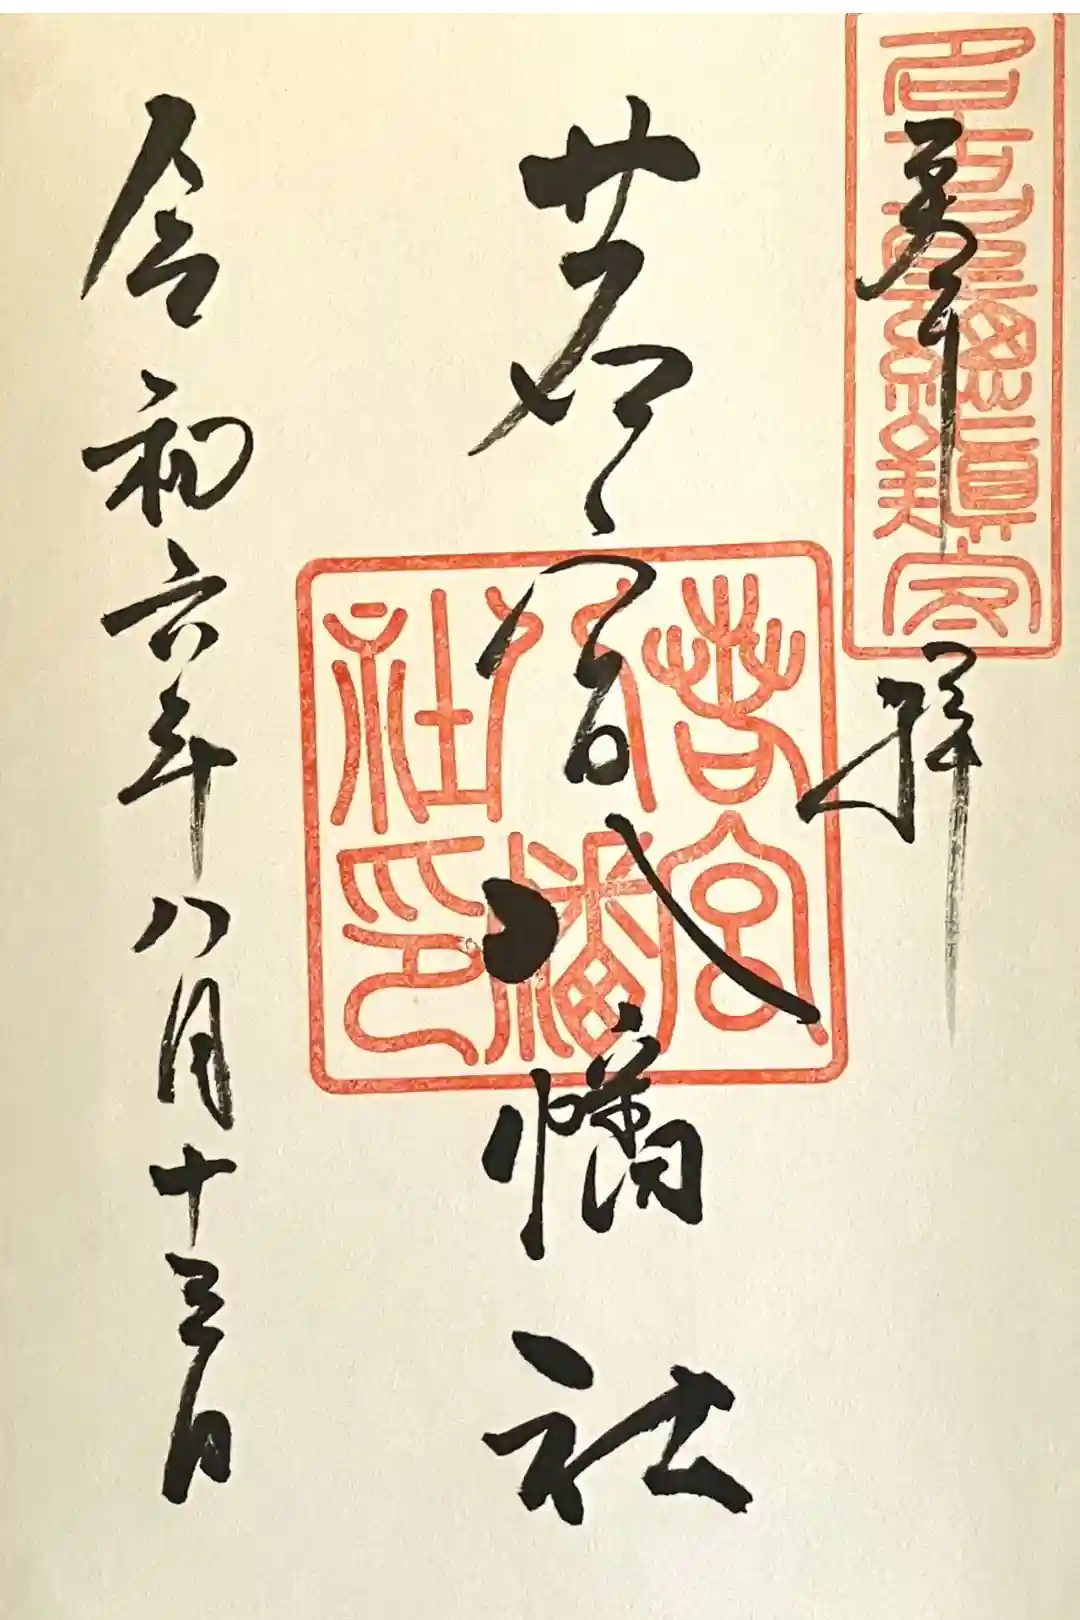 名古屋總鎮守
奉拝
若宮八幡社
若宮
八幡
社印
令和六年八月十三日